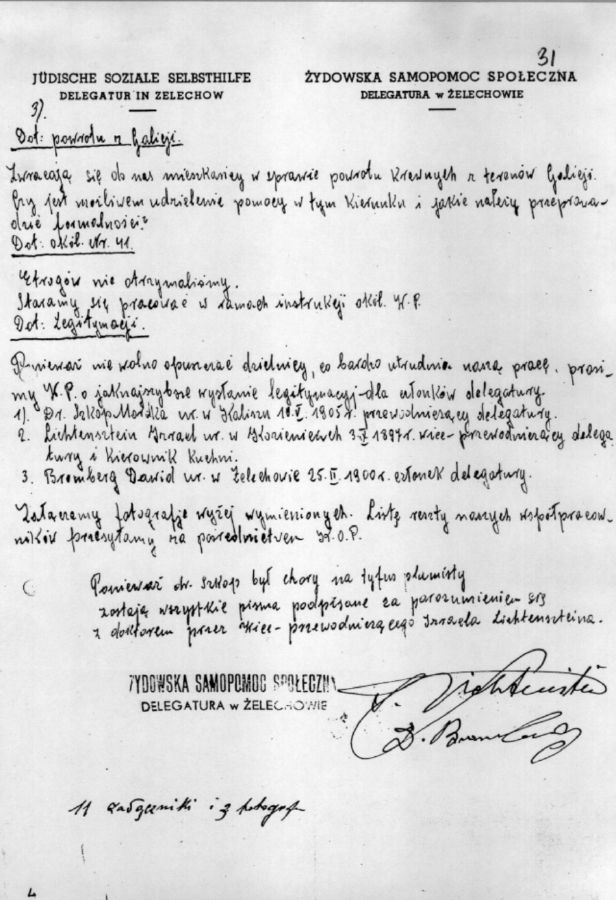 31
JÜDISCHE SOZIALE SELBSTHILFE
DELEGATUR IN ZELECHOW
ŻYDOWSKA SAMOPOMOC SPOŁECZNA
DELEGATURA w ŻELECHOWIE
3).
Dot: powrotu z Galicji.
Zwracają się do nas mieszkańcy w sprawie powrotu krewnych z terenów Galicji.
Czy jest możliwem udzielenie pomocy w tym kierunku i jakie należy przeprowa-
dzić formalności?
Dot: okól. Nr. 41.
Etrogów nie otrzymaliśmy.
Staramy się pracować w ramach instrukcji okól. W.P.
Dot: Legitymacji.
Ponieważ nie wolno opuszczać dzielnicy, co bardzo utrudnia naszą pracę, prosi-
my W.P. o jaknajszybsze wysłanie legitymacyj dla członków delegatury.
1). Dr. Szkop Moritka ur. w Kaliszu V. 1905r. przewodniczący delegatury.
2. Lichtensztein Izrael ur. w Kozienicach 3. 1897r. wice-przewodniczący delega
tury i kierownik kuchni.
3. Bromberg Dawid ur. w Żelechowie 25.II.1900r. członek delegatury.
Załączamy fotografje wyżej wymienionych. Listę reszty naszych współpracow-
ników przesyłamy za pośrednictwem K.O.P.
Ponieważ dr. Szkop był chory na tyfus plamisty
zostają wszystkie pisma podpisane za porozumieniem się
z doktorem przez wice-przewodniczącego Izraela Lichtenszteina.
ŻYDOWSKA SAMOPOMOC SPOŁECZNA
DELEGATURA w ŻELECHOWIE
11 załączniki i 3 fotograf